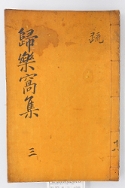 疏
歸樂窩集
三